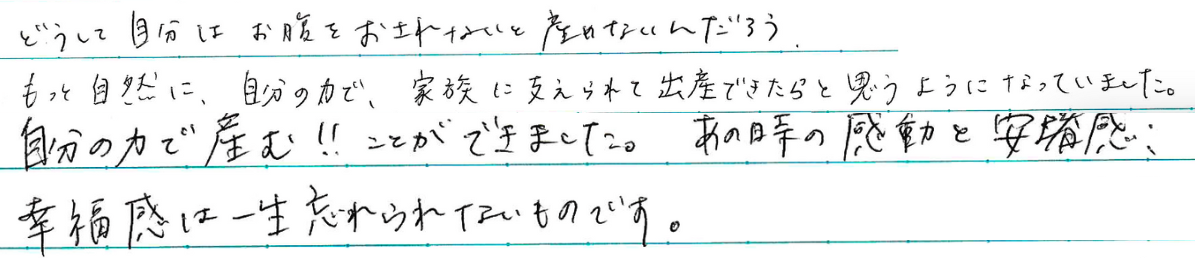 どうして自分はお腹をおされないと産めないんだろう、
もっと自然に、自分の力で、家族に支えられて出産できたらと思うようになっていました。
自分の力で産む!!ことができました。 あの時の感動と安堵感:
幸福感は一生忘れられないものです。